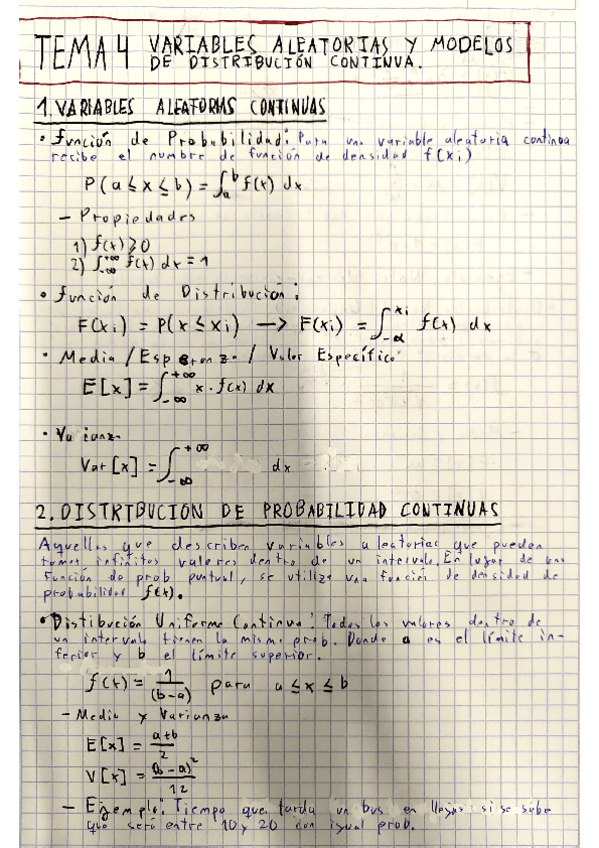 TEMA 4 VARIABLES ALEATORIAS Y MODELOS
DE DISTRIBUCIÓN CONTINUA.
1. VARIABLES ALEATORIAS CONTINUAS
• Función de Probabilidad: Para una variable aleatoria continua
recibe el nombre de función de densidad f(xi)
P(a ≤ x ≤ b) = ∫_a^b f(x) dx
– Propiedades
1) f(x) ≥ 0
2) ∫_-∞^+∞ f(x) dx = 1
• Función de Distribución:
F(xi) = P(x ≤ xi) → F(xi) = ∫_-∞^xi f(x) dx
• Media / Esperanza / Valor Específico
E[x] = ∫_-∞^+∞ x · f(x) dx
• Varianza
Var[x] = ∫_-∞^+∞ dx
2. DISTRIBUCION DE PROBABILIDAD CONTINUAS
Aquellas que describen variables aleatorias que pueden
tomar infinitos valores dentro de un intervalo. En lugar de una
función de prob puntual, se utiliza una función de densidad de
probabilidad f(x).
• Distibución Uniforme Continua: Todos los valores dentro de
un intervalo tienen la misma prob. Donde a es el límite in-
ferior y b el límite superior.
f(x) = 1/(b-a) para a ≤ x ≤ b
– Media y Varianza
E[x] = a+b/2
V[x] = (b-a)²/12
– Ejemplo: Tiempo que tarda un bus en llegar si se sabe
que será entre 10 y 20 con igual prob.